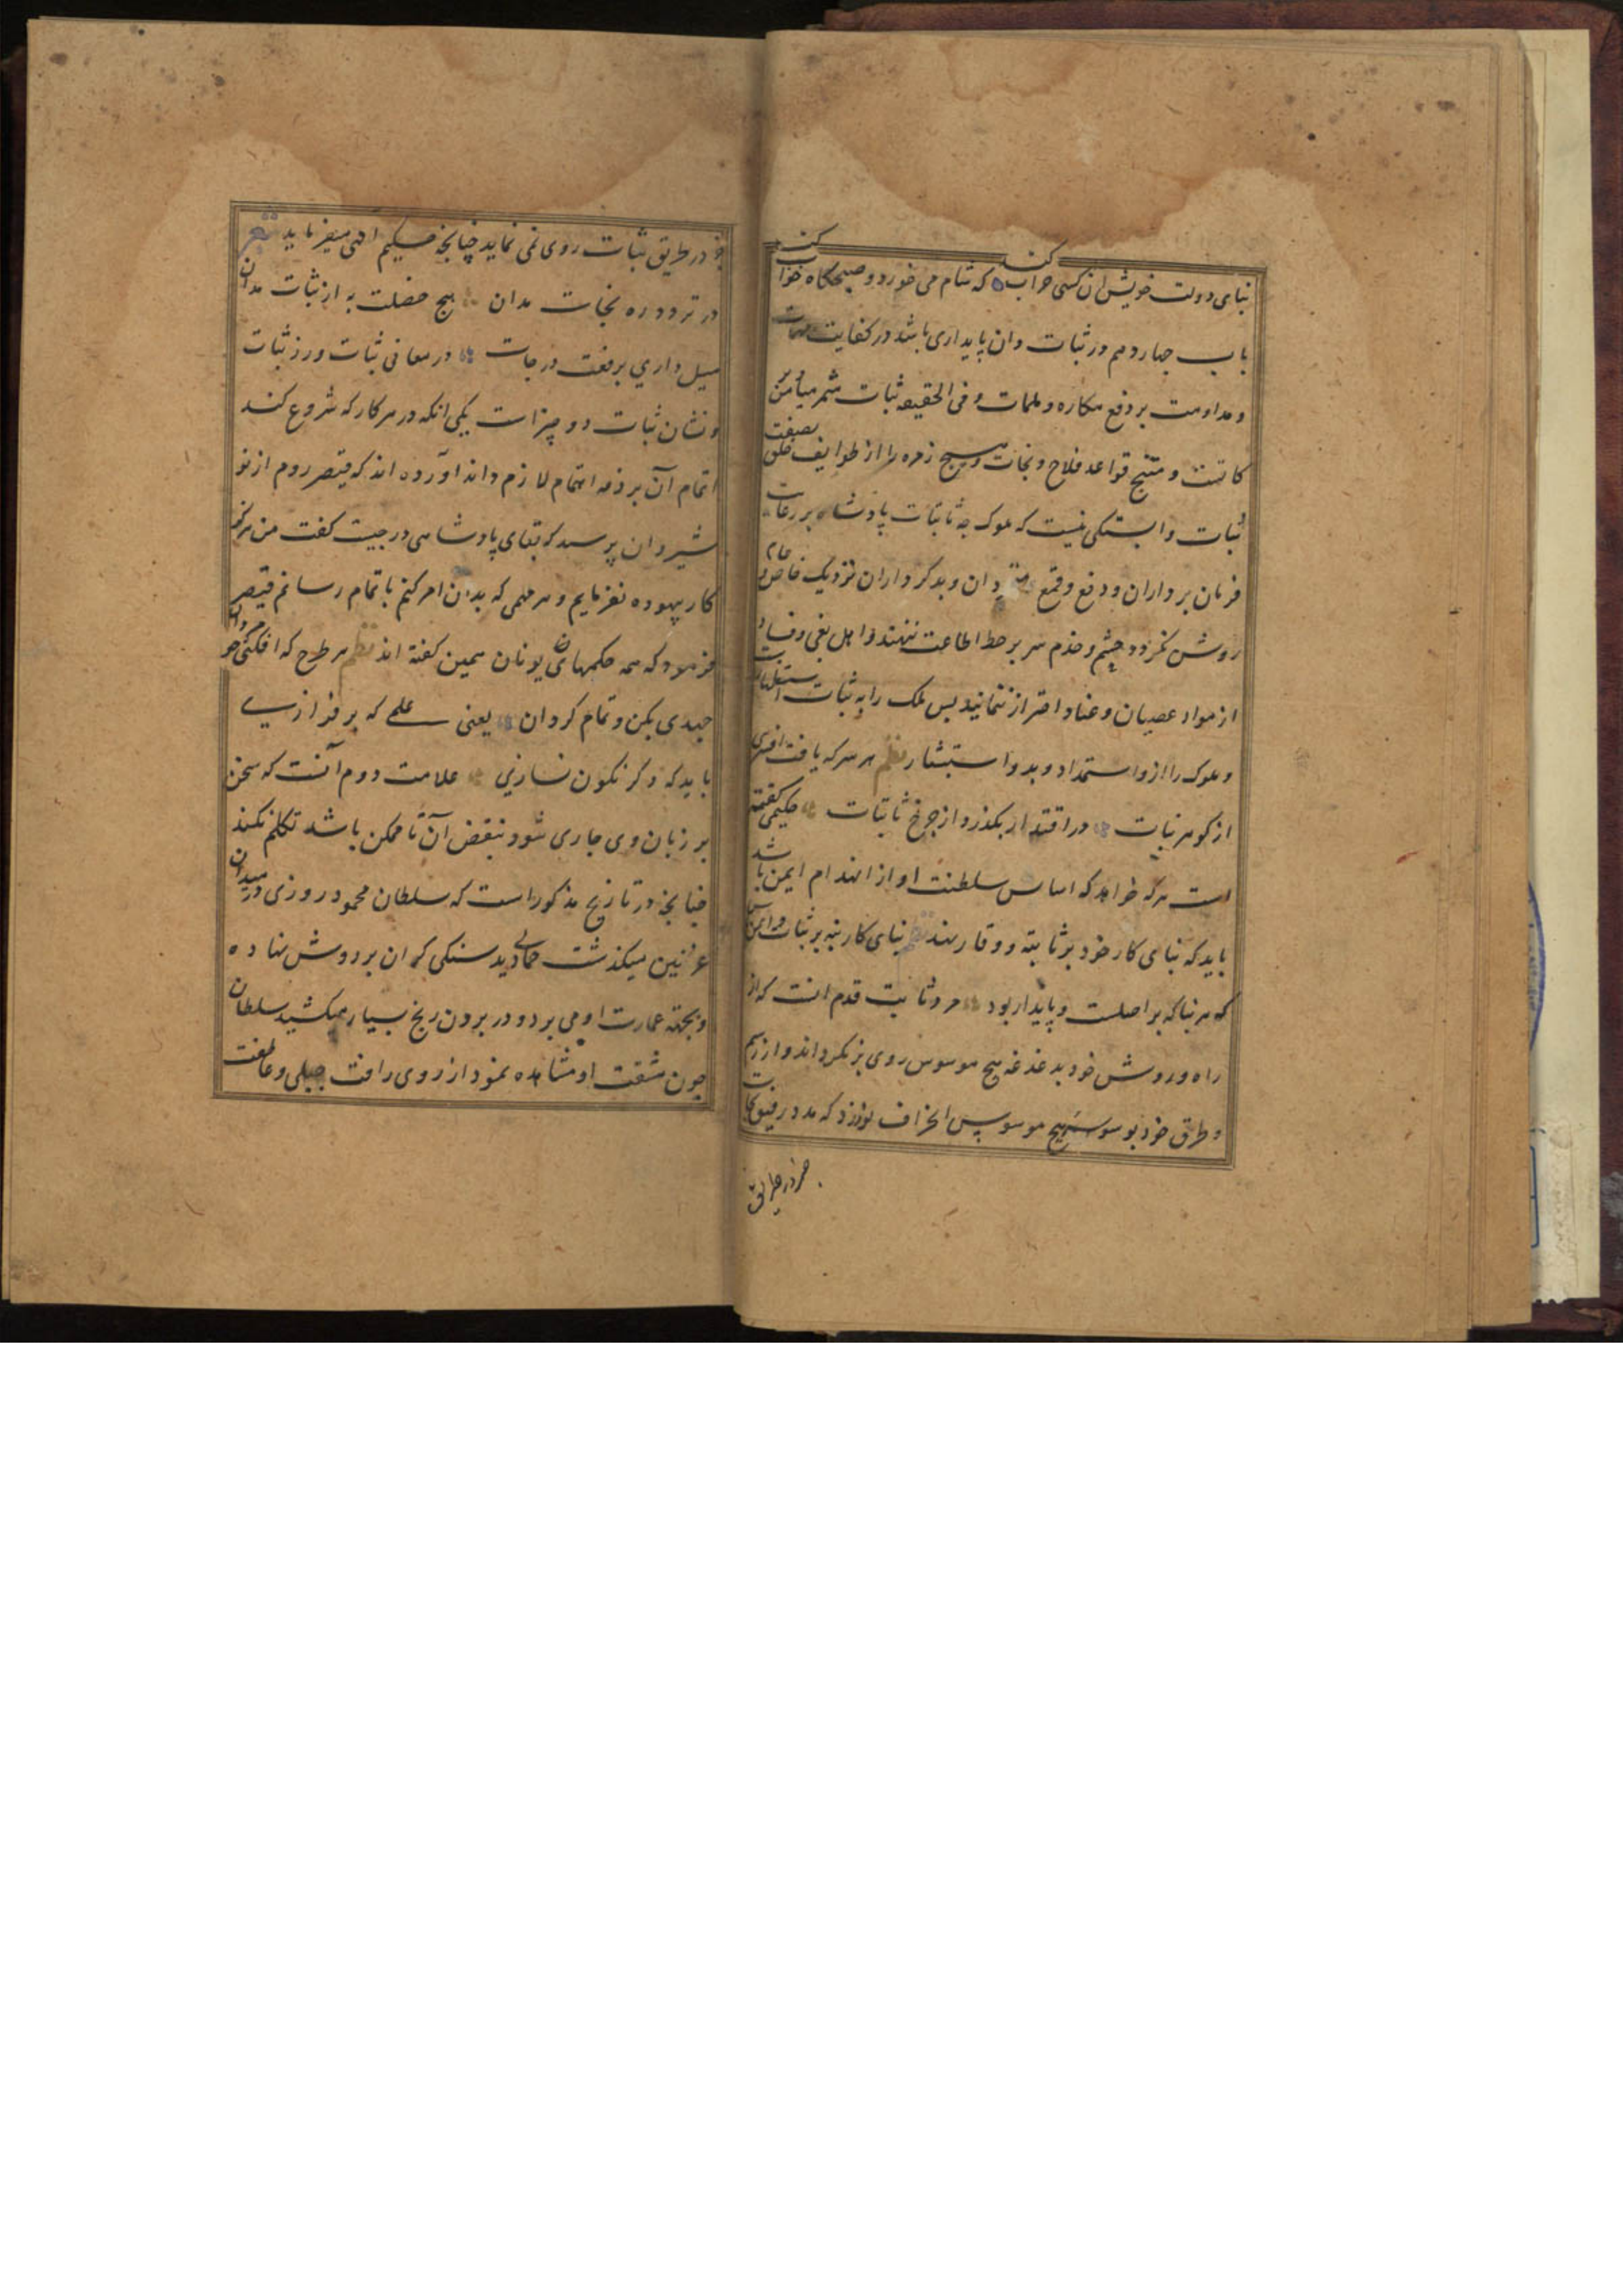 بنای دولت خویش ان کسی خراب کند که شام می خورد و صبحکاه خواب کند
باب چهاردهم در ثبات وان پایداری باشد در کفایت مهمات
و مداومت بر دفع مکاره و ملمات و فی الحقیقه ثبات مثمر میامن
کانتست و منتج قواعد فلاح و نجات و هیچ زمره را از طوایف خلق بصفت
ثبات وابستکی نیست که ملوک چه تا ثبات پادشاه بر رعایت
فرمان برداران و دفع و قمع دان و بدکرداران نزدیک خاص و عام
روشن نکردد چشم و خدم سر بر خط اطاعت ننهند و اهل بغی و فساد
از مواد عصیان و عناد احتراز ننمایند پس ملک را به ثبات استظهارت
و ملوک را ازو استمداد و بدو استبشار نظم هر سر که یافت افسری
از کوهر ثبات در اقتدار بکذرد از چرخ ثابتات حکیمی کفته
است هرکه خواهد که اساس سلطنت او از انهدام ایمن باشد
باید که بنای کار خود بر ثابته و وقار نهد نظم بنای کار بنه بر ثبات و ایمن باش
که هر بنا که بر اصلست و پایدار بود مرد ثابت قدم انست که از
راه و روش خود بدغدغه هیچ موسوس روی بر نکرداند و از رسم
و طرق خود بوسوسه هیچ موسوس انحراف نورزد که مدد رفیق نجات
جز در طریق
جز در طریق ثبات روی نمی نماید چنانچه حکیم الهی میفرماید شعر
در تردد ره نجات مدان هیچ خصلت به از ثبات مدان
میل داری برفعت درجات در معانی ثبات ورز ثبات
و نشان ثبات دو چیزاست یکی انکه در هر کار که شروع کند
اتمام آن بر ذمه اهتمام لازم داند اورده اند که قیصر روم از نو
شیروان پرسید که بقای پادشاهی در چیست کفت من هرکز
کار بیهوده نفرمایم و هر مهمی که بدان امر کنم باتمام رسانم قیصر
فرمود که همه حکمهای یونان همین کفته اند نظم هر طرح که افکنی چو مردان
جهدی بکن و تمام کردان یعنی علمی که بر فرازی
باید که دکر نکون نسازی علامت دوم آنست که سخن
بر زبان وی جاری شود بنقض آن تا ممکن باشد تکلم نکند
چنانچه در تاریخ مذکور است که سلطان محمود روزی در میدان
غزنین میکذشت حمالی دید سنکی کران بر دوش نهاده
و بجهته عمارت او می برد و در بردن رنج بسیار میکشید سلطان
چون مشقت او مشاهده نمود از روی رافت جبلی و عاطفت